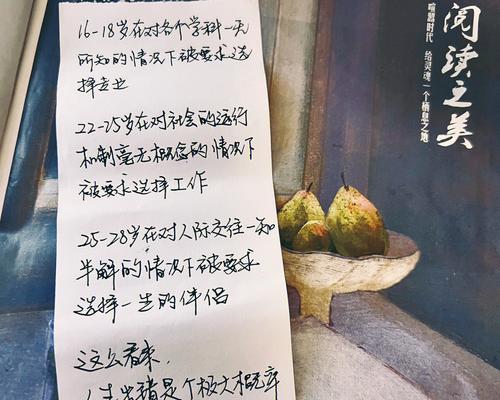 16-18岁在对各个学科一无
所知的情况下被要求选
择专业
22-25岁在对社会的运行
机制毫无概念的情况下
被要求选择工作
25-28岁在对人际交往一知
半解的情况下被要求
选择一生的伴侣
这么看来,
人生出错是个极大概率
阅读之美
喧嚣时代 给灵魂一个栖息之地